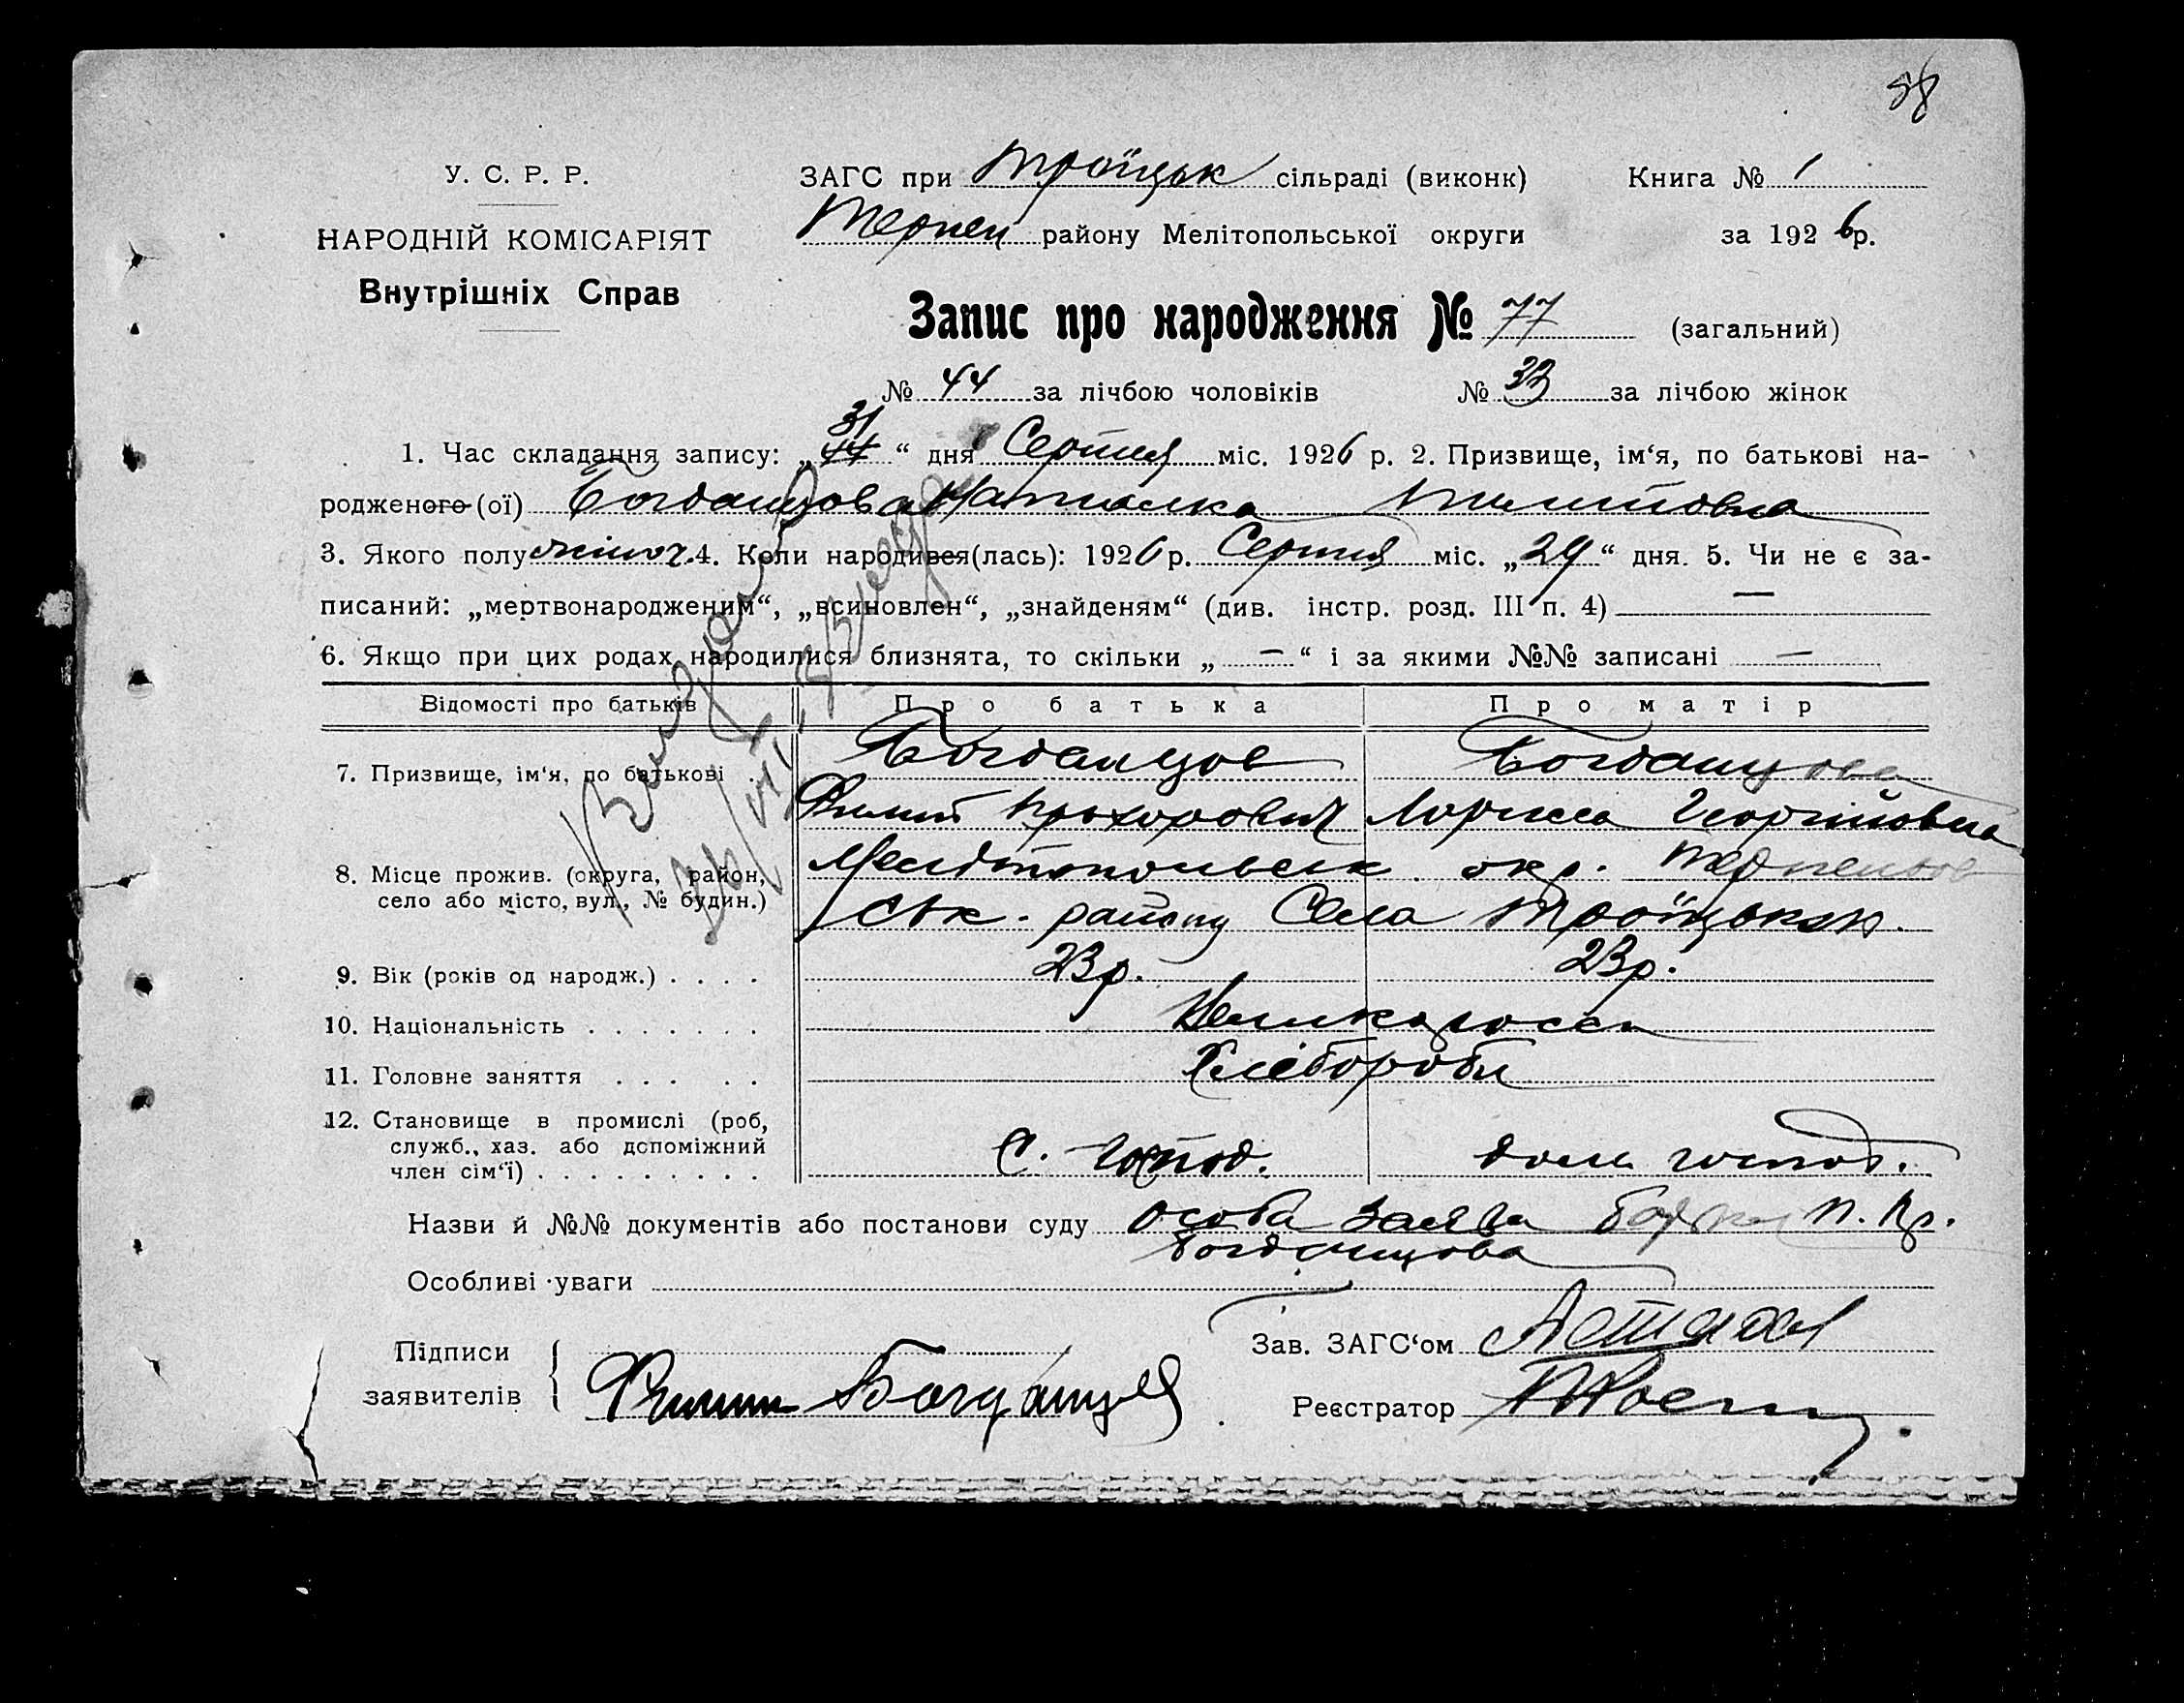 58
У. С. Р. Р.
НАРОДНІЙ КОМІСАРІЯТ
Внутрішніх Справ
ЗАГС при Троїцьк сільраді (виконк) Книга № 1
Терпен району Мелітопольської округи за 1926 р.
Запис про народження № 77 (загальний)
№ 44 за лічбою чоловіків № 33 за лічбою жінок
31
1. Час складання запису: „44“ дня Серпня міс. 1926 р. 2. Призвище, ім‘я, по батькові на-
родженого (ої) Богданцова Наталка
3. Якого полу жіноч. 4. Коли народився (лась): 1926 р. Серпня міс. „29“ дня. 5. Чи не є за-
писаний: „мертвонародженим“, „всиновлен“, „знайденям“ (див. інстр. розд. III п. 4) —
6. Якщо при цих родах народилися близнята, то скільки „ — “ і за якими №№ записані —
Відомості про батьків Про батька Про матір
7. Призвище, ім‘я, по батькові . Богданцов Богданцова
Филип Прохорович Георгійовна
8. Місце прожив. (округа, район, Мелітопольськ окр. Терпеньов
село або місто, вул., № будин.) ськ. району Села Троїцьком.
9. Вік (років од народж.) . . . . 23 р. 23 р.
10. Національність . . . . . . . Великороси
11. Головне заняття . . . . . Хлібороби
12. Становище в промислі (роб,
служб., хаз. або допоміжний
член сім‘ї) . . . . . . . . . С. господ. дом. господ.
Назви й №№ документів або постанови суду особ. заява П. Пр.
Богданцова
Особливі уваги
Підписи
заявителів Филип Богданцов
Зав. ЗАГС‘ом
Реєстратор